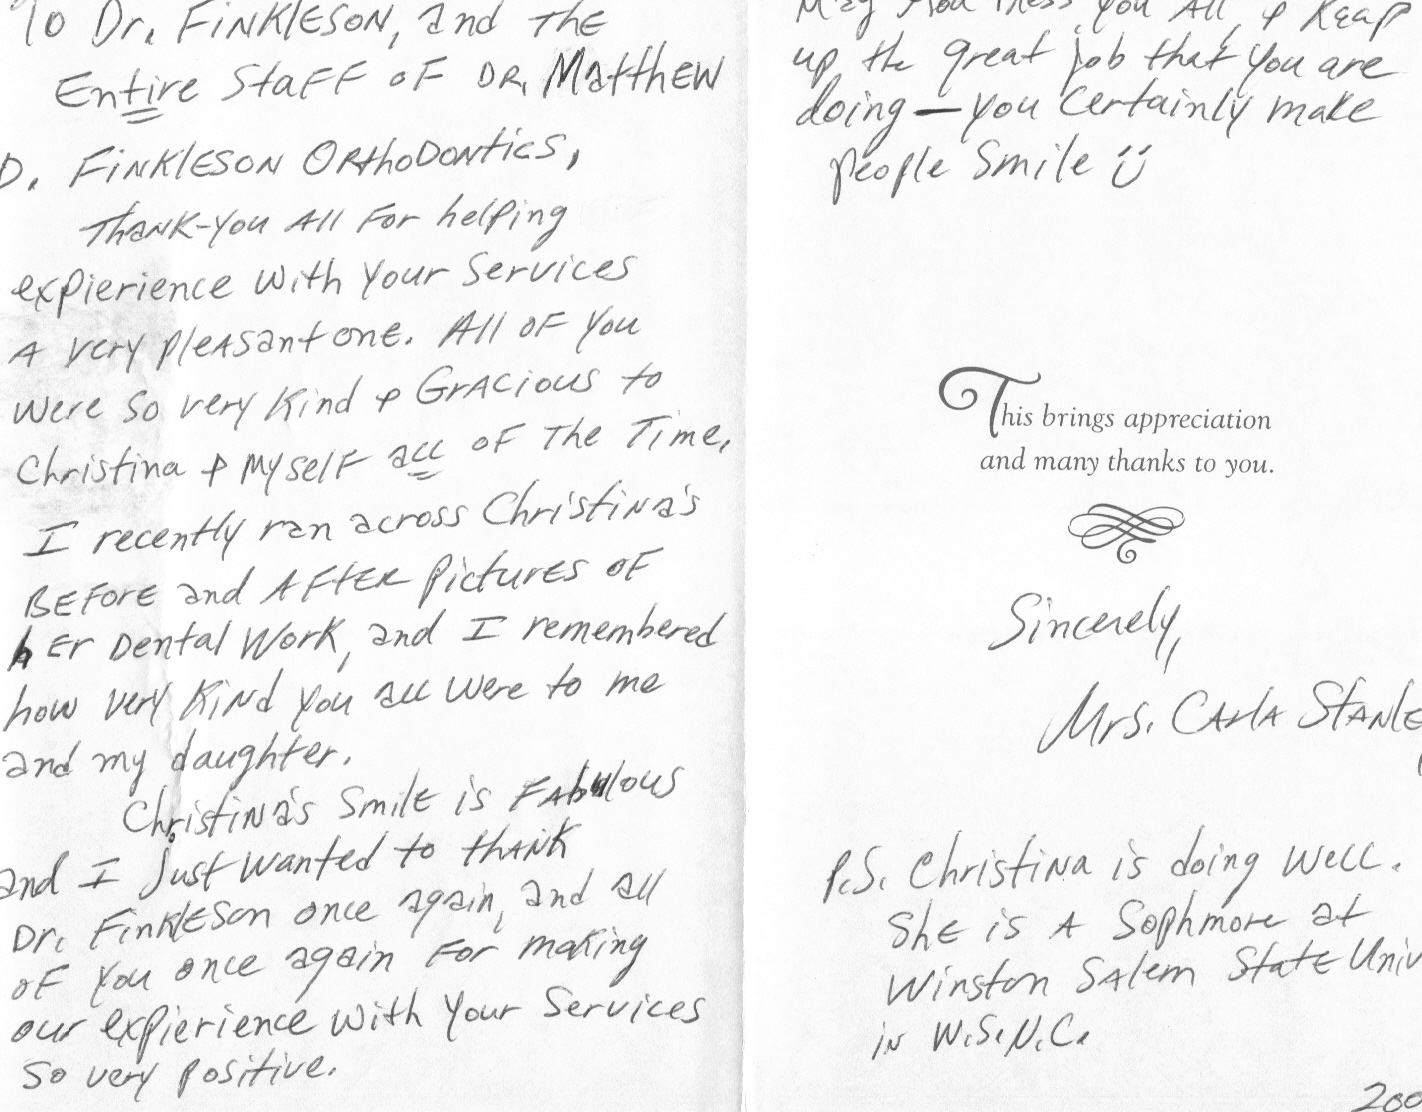 To Dr. Finkleson, and the
Entire Staff of Dr. Matthew
D. Finkleson Orthodontics,
Thank-you All For helping
expierience with your Services
A very pleasant one. All of you
were so very Kind & Gracious to
Christina & myself all of The Time.
I recently ran across Christina's
Before and After pictures of
her Dental Work, and I remembered
how very Kind you all were to me
and my daughter.
Christina's Smile is Fabulous
and I just wanted to thank
Dr. Finkleson once again, and all
of you once again for making
our expierience with your Services
So very positive.
May you All, & Keep
up the great job that you are
doing — you certainly make
people Smile ü
This brings appreciation
and many thanks to you.
Sincerely,
Mrs. Carla Stanle
P.S. Christina is doing well.
She is A Sophmore at
Winston Salem State Univ
in W.S.N.C.
200